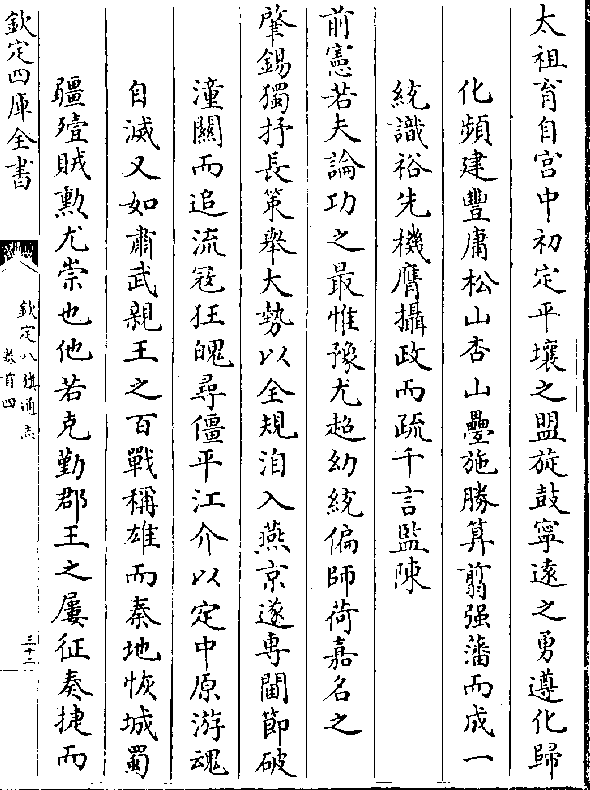 太祖育自宫中初定平壤之盟旋鼓寧遠之勇遵化歸
化頻建豐庸松山杏山疊施勝算翦强藩而成一
統識裕先機膺攝政而疏千言監陳
前憲若夫論功之最惟豫尤超幼統偏師荷嘉名之
肇錫獨抒長策舉大勢以全規洎入燕京遂專閫節破
潼關而追流寇狂魄尋僵平江介以定中原游魂
自滅又如肅武親王之百戰稱雄而秦地恢城蜀
疆殪賊勲尤崇也他若克勤郡王之屢征奏捷而
欽定四庫全書
欽定八旗通志
卷首四
三十二